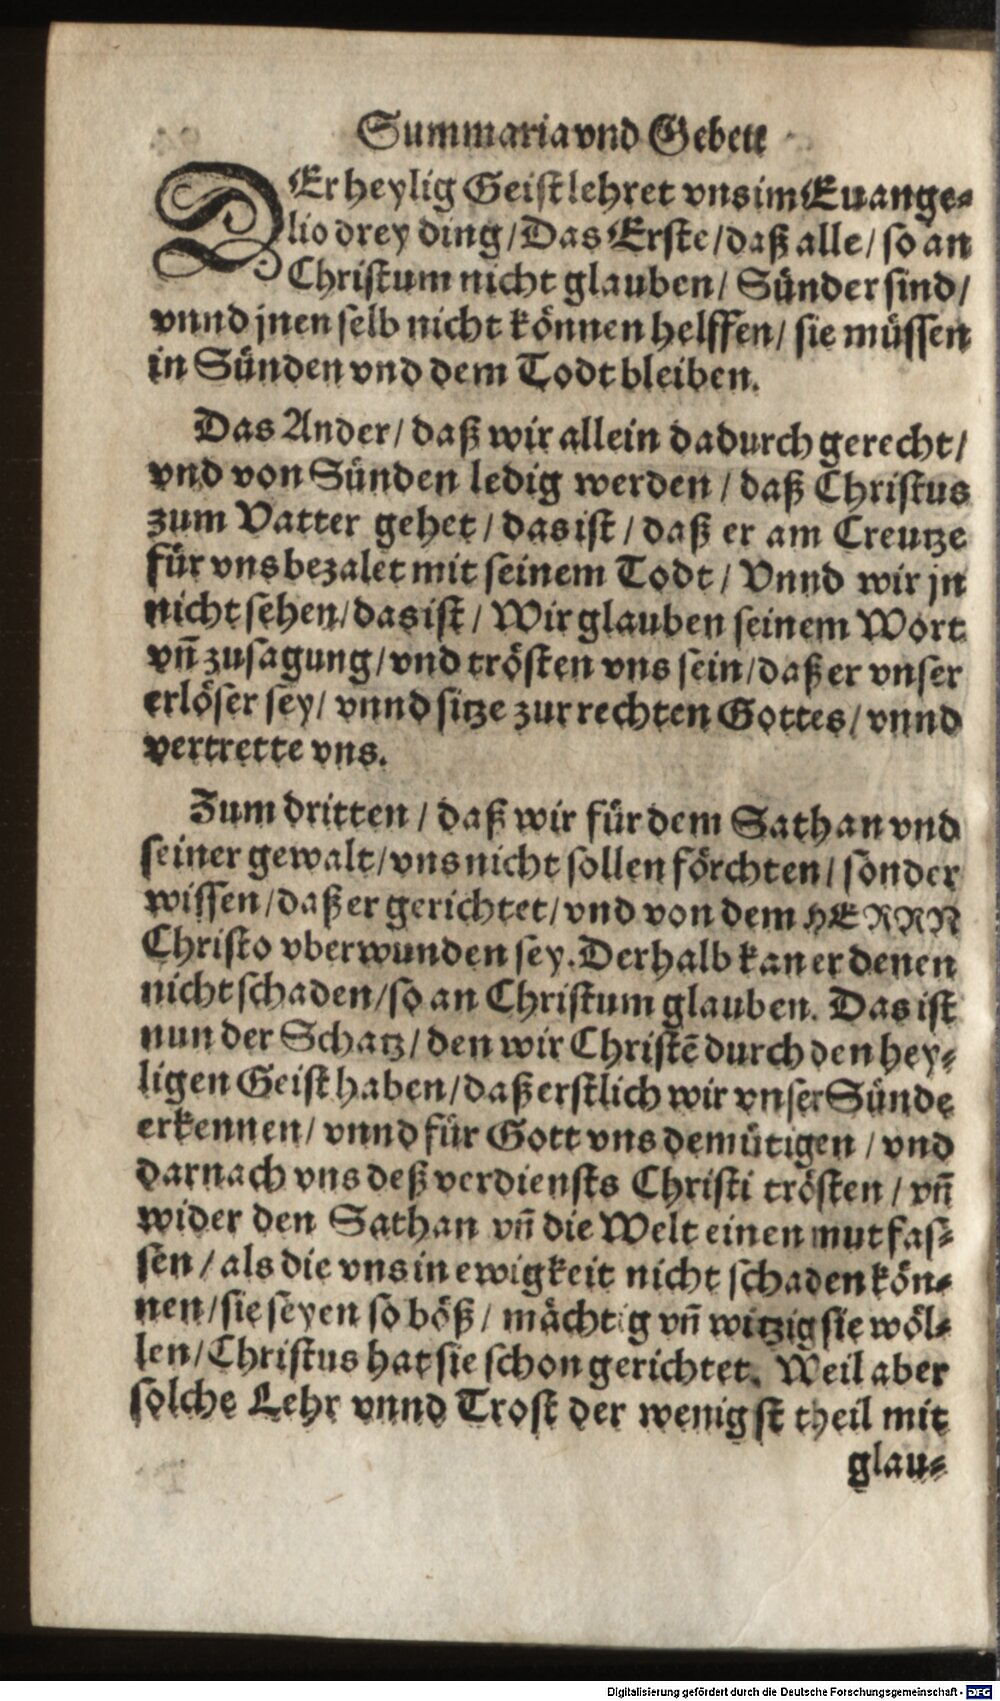 Summaria vnd Gebett
DEr heylig Geist lehret vns im Euange-
lio drey ding/ Das Erste/ daß alle/ so an
Christum nicht glauben/ Sünder sind/
vnnd jnen selb nicht können helffen/ sie müssen
in Sünden vnd dem Todt bleiben.
Das Ander/ daß wir allein dadurch gerecht/
vnd von Sünden ledig werden/ daß Christus
zum Vatter gehet/ das ist/ daß er am Creutze
für vns bezalet mit seinem Todt/ Vnnd wir jn
nicht sehen/ das ist/ Wir glauben seinem Wort
vn̄ zusagung/ vnd trösten vns sein/ daß er vnser
erlöser sey/ vnnd sitze zur rechten Gottes/ vnnd
vertrette vns.
Zum dritten/ daß wir für dem Sathan vnd
seiner gewalt/ vns nicht sollen förchten/ sonder
wissen/ daß er gerichtet/ vnd von dem HERRN
Christo vberwunden sey. Derhalb kan er denen
nicht schaden/ so an Christum glauben. Das ist
nun der Schatz/ den wir Christē durch den hey-
ligen Geist haben/ daß erstlich wir vnser Sünde
erkennen/ vnnd für Gott vns demütigen/ vnd
darnach vns deß verdiensts Christi trösten/ vn̄
wider den Sathan vn̄ die Welt einen mut fas-
sen/ als die vns in ewigkeit nicht schaden kön-
nen/ sie seyen so böß/ mächtig vn̄ witzig sie wöl-
len/ Christus hat sie schon gerichtet. Weil aber
solche Lehr vnnd Trost der wenigst theil mit
glau-
Digitalisierung gefördert durch die Deutsche Forschungsgemeinschaft - DFG